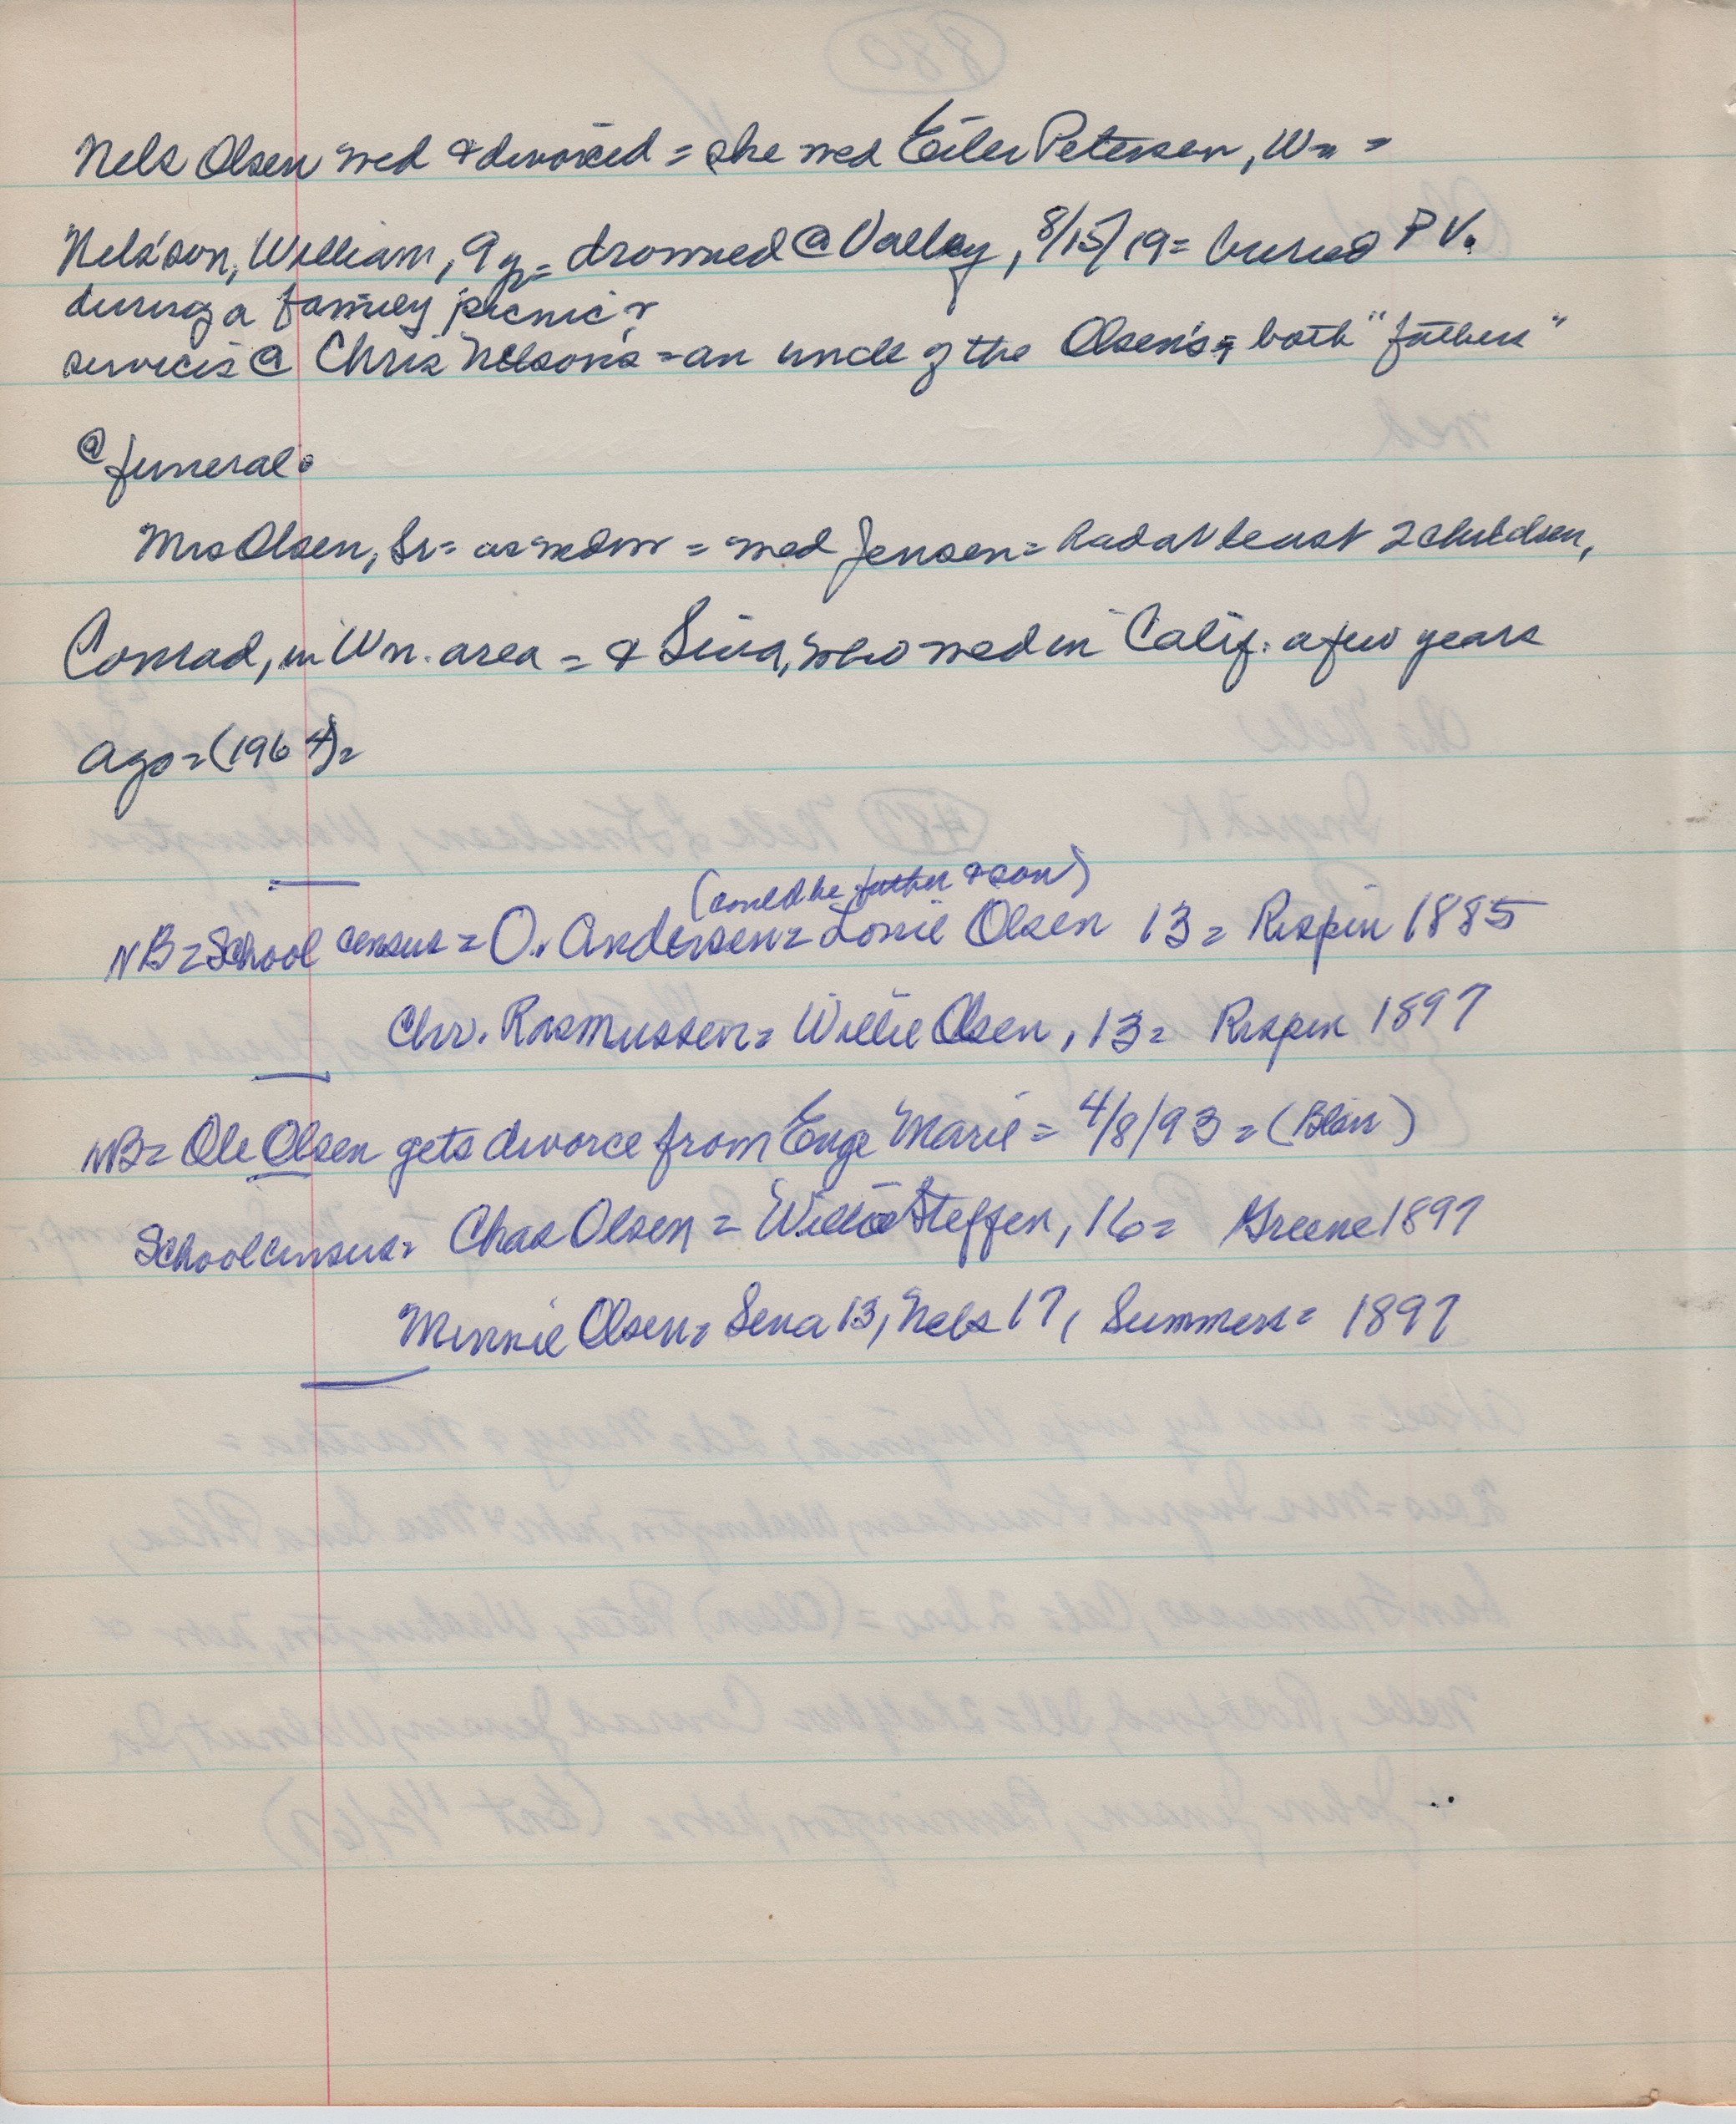 Nels Olsen wed & divorced = she wed Eiler Petersen, Wn =
Nels' son, William, 9 y = drowned @ Valley, 8/15/19 = buried P V.
during a family picnic &
services @ Chris Nelson's = an uncle of the Olsen's = both "fathers"
@ funeral.
Mrs Olsen, Sr = as widow = wed Jensen = had at least 2 children,
Conrad, in Wn. area = & Sina, who wed in Calif. a few years
ago = (1964) =
(could be father & son)
NB = School census = O. Andersen = Louie Olsen 13 = Rispin 1885
Chr. Rasmussen = Willie Olsen, 13 = Rispin 1897
NB = Ole Olsen gets divorce from Enge Marie = 4/8/93 = (Blair)
School census = Chas Olsen = Willie Steffen, 16 = Greene 1897
Minnie Olsen = Sena 13, Nels 17, Summers = 1897